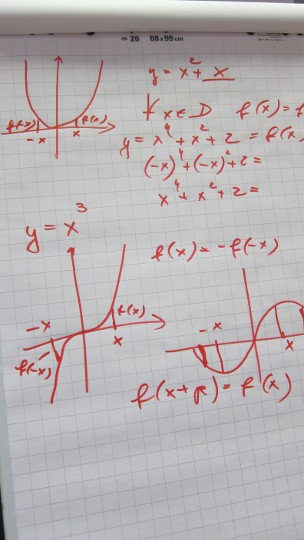 = 20 68 x 99 cm
y = x² + x
f(-x) f(x)
-x x
∀ x ∈ D f(x) = f
y = x⁴ + x² + 2 = f(x)
(-x)⁴ + (-x)² + 2 =
x⁴ + x² + 2 =
y = x³
f(x) = -f(-x)
f(x)
-x x
f(-x)
-x x
f(x+p) = f(x)